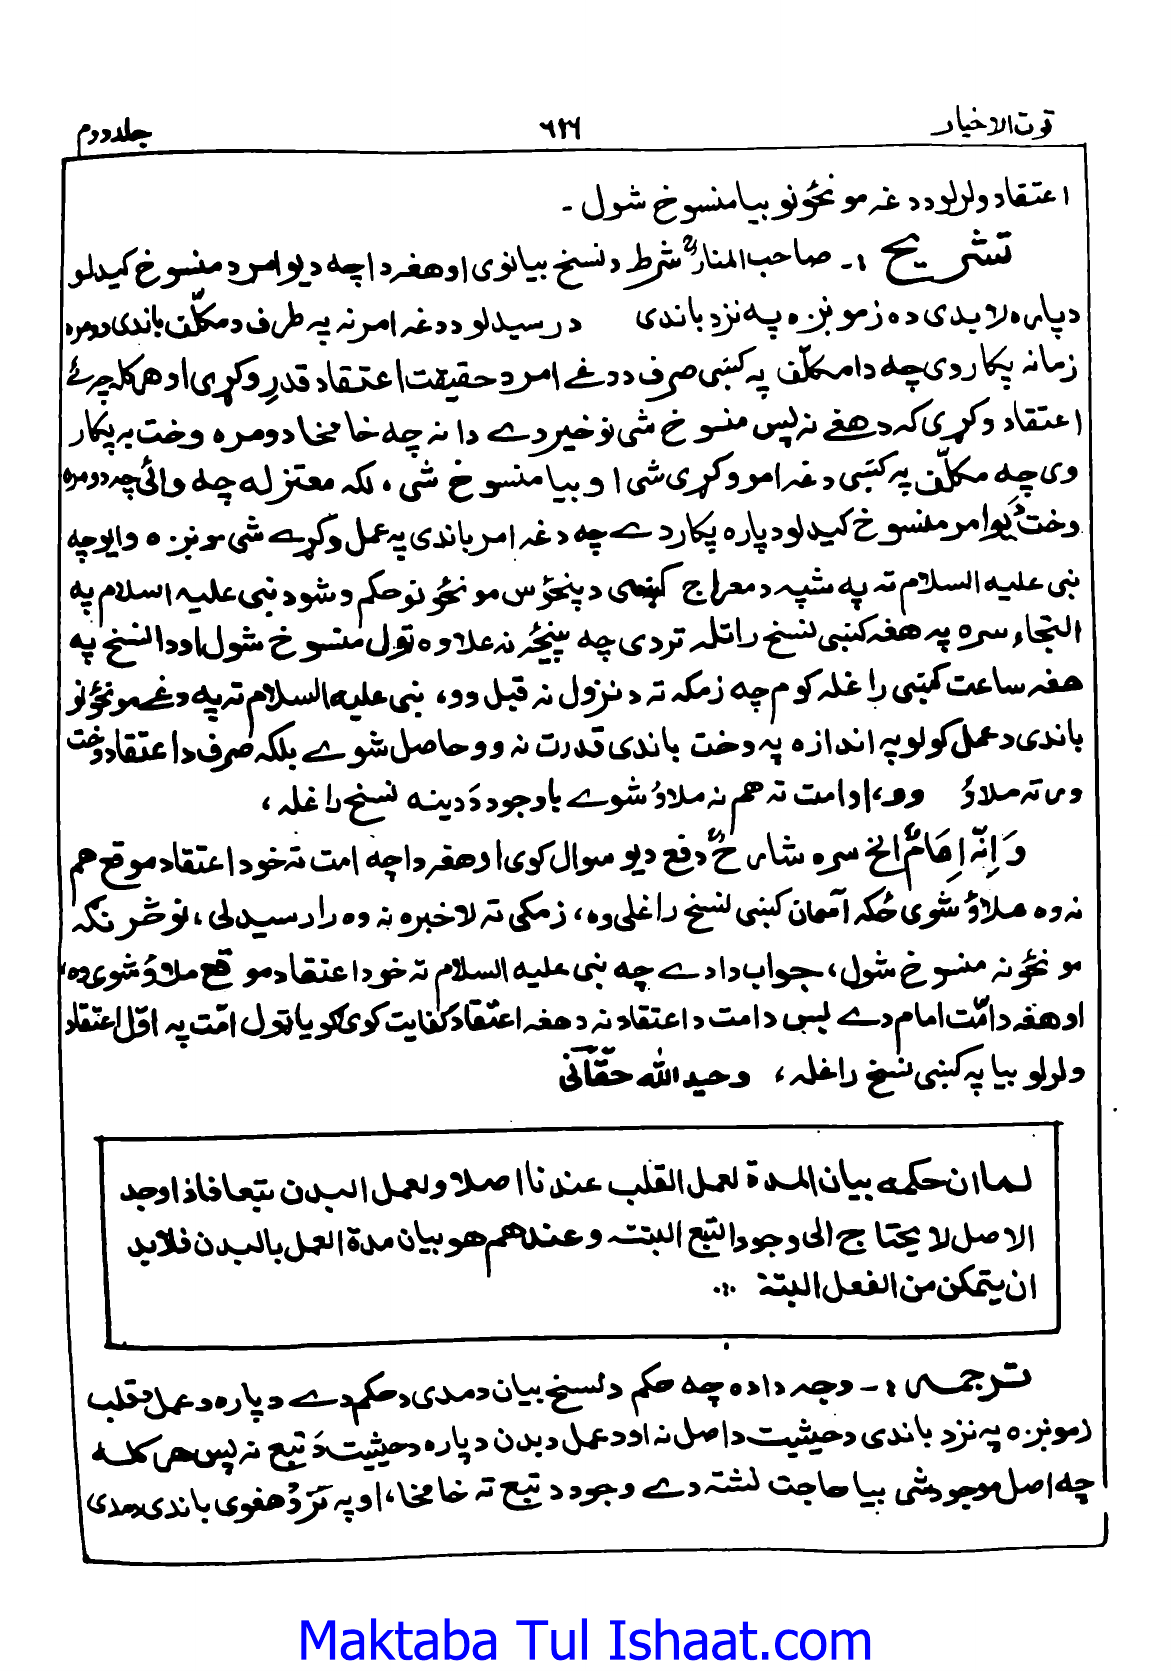 قوت الاخیار ۶۲۶ جلد دوم
اعتقاد ولرلو د دغہ مونځونو بیا منسوخ شول ۔
تشریح :۔ صاحب المنارؒ شرط د نسخ بیانوی او هغہ دا چه د یو امر د منسوخ کیدلو
دپارہ لابدی دہ زمونږه په نزد باندی د رسیدلو د دغہ امر نہ پہ طرف د مکلّف باندی دومرہ
زمانہ پکار دی چه دا مکلّف په کښی صرف د دغے امر د حقیقت اعتقاد قدرِ وکړی او هر کلہ چرئے
اعتقاد وکړی که دهغے نہ پس منسوخ شی نو خیر دے دا نہ چه خامخا دومرہ وخت به پکار
وی چه مکلّف په کښی دغہ امر وکړی شی او بیا منسوخ شی ، لکه معتزله چه وائی چه دومرہ
وخت د یو امر منسوخ کیدلو دپارہ پکار دے چه دغہ امر باندی پہ عمل وکړے شی مونږه وایو چه
نبی علیه السلام تہ په شپه د معراج کښی د پنځوس مونځونو حکم وشو د نبی علیہ السلام په
التجاء سره په هغہ کښی نسخ راتله تردی چه پینځہ نہ علاوہ ټول منسوخ شول او دا نسخ په
هغہ ساعت کښی راغلہ کوم چه زمکہ تہ د نزول نہ قبل وو، نبی علیه السلام تہ په دغے مونځونو
باندی د عمل کولو پہ اندازہ پہ وخت باندی قدرت نہ وو حاصل شوے بلکہ صرف دا عتقاد وخت
ورتہ ملاؤ وو، او امت تہ هم نہ ملاؤ شوے باوجود دَ دینہ نسخ راغلہ ،
وَاِنّہٗ اِمَامٌ الخ سرہ شارحؒ دفع د یو سوال کوی او هغہ دا چه امت تہ خو د اعتقاد موقع هم
نہ وہ ملاؤ شوی ځکہ آسمان کښی نسخ راغلی وہ، زمکی تہ لا خبرہ نہ وہ رارسیدلی ، نو څرنګہ
مونځونہ منسوخ شول، جواب دا دے چه نبی علیه السلام تہ خو د اعتقاد موقع ملاؤ شوی وہ،
او هغہ د امّت امام دے لبس د امت د اعتقاد نہ د هغہ اعتقاد کفایت کوی ګویا ټول امّت پہ اوّل اعتقاد
ولرلو بیا پہ کښی نسخ راغلہ ، وحید اللہ حقّانی
لما ان حکمه بیان المدة لعمل القلب عندنا اصلا ولعمل البدن تبعا فاذا وجد
الاصل لا یحتاج الی وجود التبع البتة وعندهم هو بیان مدة العمل بالبدن فلابد
ان یتمکن من الفعل البتة ۔
ترجمہ :۔ وجہ دا دہ چه حکم د نسخ بیان د مدی د حکم دے دپارہ د عمل د قلب
زمونږه پہ نزد باندی د حیثیت د اصل نہ او د عمل د بدن دپارہ د حیثیت دَ تبع نہ پس هر کلہ
چه اصل موجود شی بیا حاجت نشته دے وجود د تبع تہ خامخا، او پہ نزد د هغوی باندی د مدی
Maktaba Tul Ishaat.com